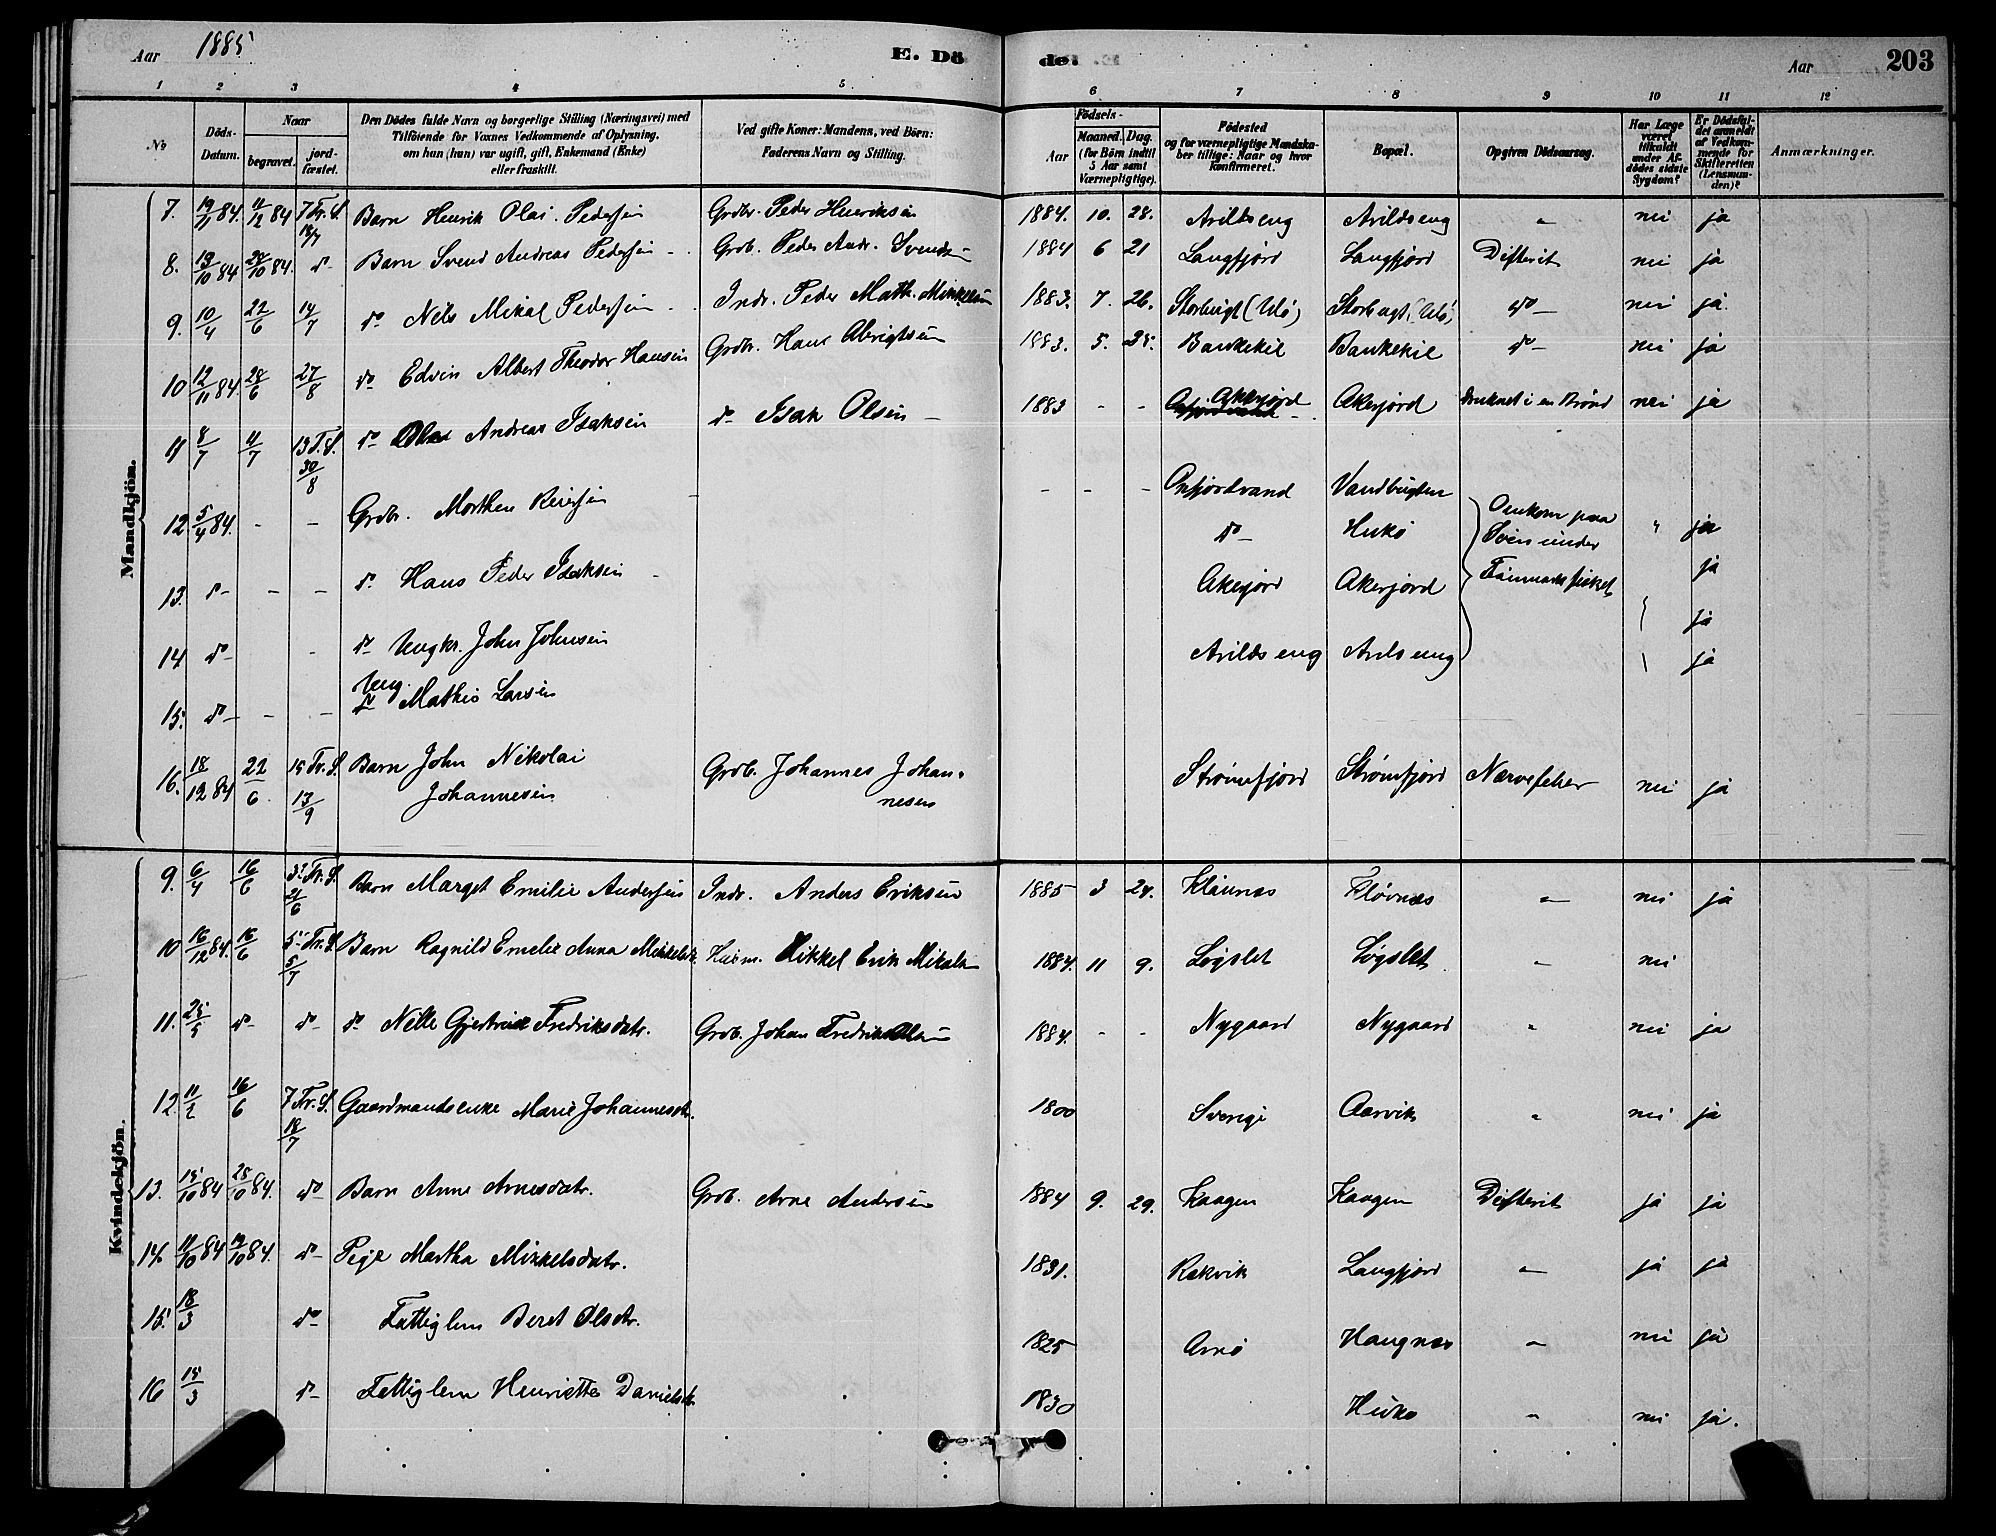 Aar 1885 E. Döde. Aar 203
1 2 3 4 5 6 7 8 9 10 11 12
No Döds-Datum. Naar begravet. jordfæstet. Den Dödes fulde Navn og borgerlige Stilling (Næringsvei) med Tilföiende for Voxnes Vedkommende af Oplysning, om han (hun) var ugift, gift, Enkemand (Enke) eller fraskilt. Ved gifte Koner: Mandens, ved Börn: Faderens Navn og Stilling. Födsels- Aar Maaned. Dag. (for Börn indtil 5 Aar samt Værnepligtige). Födested og for værnepligtige Mandskaber tillige: Naar og hvor konfirmeret. Bopæl. Opgiven Dödsaarsag. Har Læge været tilkaldt under Afdödes sidste Sygdom? Er Dödsfaldet anmeldt af Vedkommende for Skifteretten (Lensmanden)? Anmærkninger.
Mandkjön.
7. 4/12 84 7 Tr. S. 18/7 Barn Henrik Olai Pedersen Grdbr. Peder Henriksen 1884. 10. 28. Arildseng Arildseng " nei ja
8. 19/10 84 28/10 84. do Barn Svend Andreas Pedersen Grdb. Peder Andr. Svendsen 1884 6 21 Langfjord Langfjord Difterit nei ja
9. 10/4 22/6 19/7 do Nels Mikal Pedersen Indr. Peder Math. Mikkelsen 1883. 7. 26. Storbugt (Ulø) Storbugt (Ulø) do nei ja.
10 12/11 84 28/6 27/8 do Edvin Albert Theodor Hansen Grdbr. Hans Abrigtsen 1883. 5. 25. Bankekil Bankekil do nei ja
11 8/7 11/7 13 T. S. 30/8 do Andreas Isaksen do Isak Olsen 1883 - - Akerfjord Akerfjord Druknet i en Brønd nei ja
12 5/4 84. - - Grdbr. Morthen Reiersen - - - Oxfjordvand Vandbugten Omkom paa Søen under Finmarksfisket " ja
13. do - - do Hans Peder Isaksen do Hukø ja
14 do - do Ungkr. John Johnsen Akerfjord Akerfjord ja
15. do - - Ung. do Mathis Larsen Arildseng Arildseng ja
16. 18/12 84 22/6 15 Tr. S. 13/9 Barn John Nikolai Johannesen Grdb. Johannes Johannesen Strømfjord Strømfjord Nervefeber nei ja
Kvindekjön.
9. 6/4 16/6 3 Tr. S. 21/6 Barn Marget Emilie Andersen Indr. Anders Eriksen 1885 3 24. Kløvnæs Kløvnæs " nei ja
10 16/12 84. 16/6 5 Tr. S. 5/7 Barn Ragnild Emelie Anna Mikkelsdtr. Mikkel Erik Mikalsen 1884. 11 9. Løgslet Løgslet " nei
11. 25/5 do do do Nille Gjertrud Fredriksdatr. Grdb. Johan Fredrik Olsen 1884. - - Nygaard Nygaard " nei ja
12 11/2 16/6 7 Tr. S. 18/7 Gaardmandsenke Marie Johannesdtr. 1800 Sverige Aarvik " nei ja
13. 15/10 84 28/10 84. do Barn Anne Arnesdatr. Grdb. Arne Andersen 1884 9. 29. Kaagen Kaagen Difterit ja ja
14. 11/10 84 19/10 84. do Pige Martha Mikkelsdatr. 1831. Rakvik Langfjord " ja ja
15. 18/3 do Fattiglem Beret Olsdtr. 1825 Arnø Haugnæs " nei ja
16 15/3 do Fattiglem Henriette Danielsdtr. 1830 Hukø " nei ja.